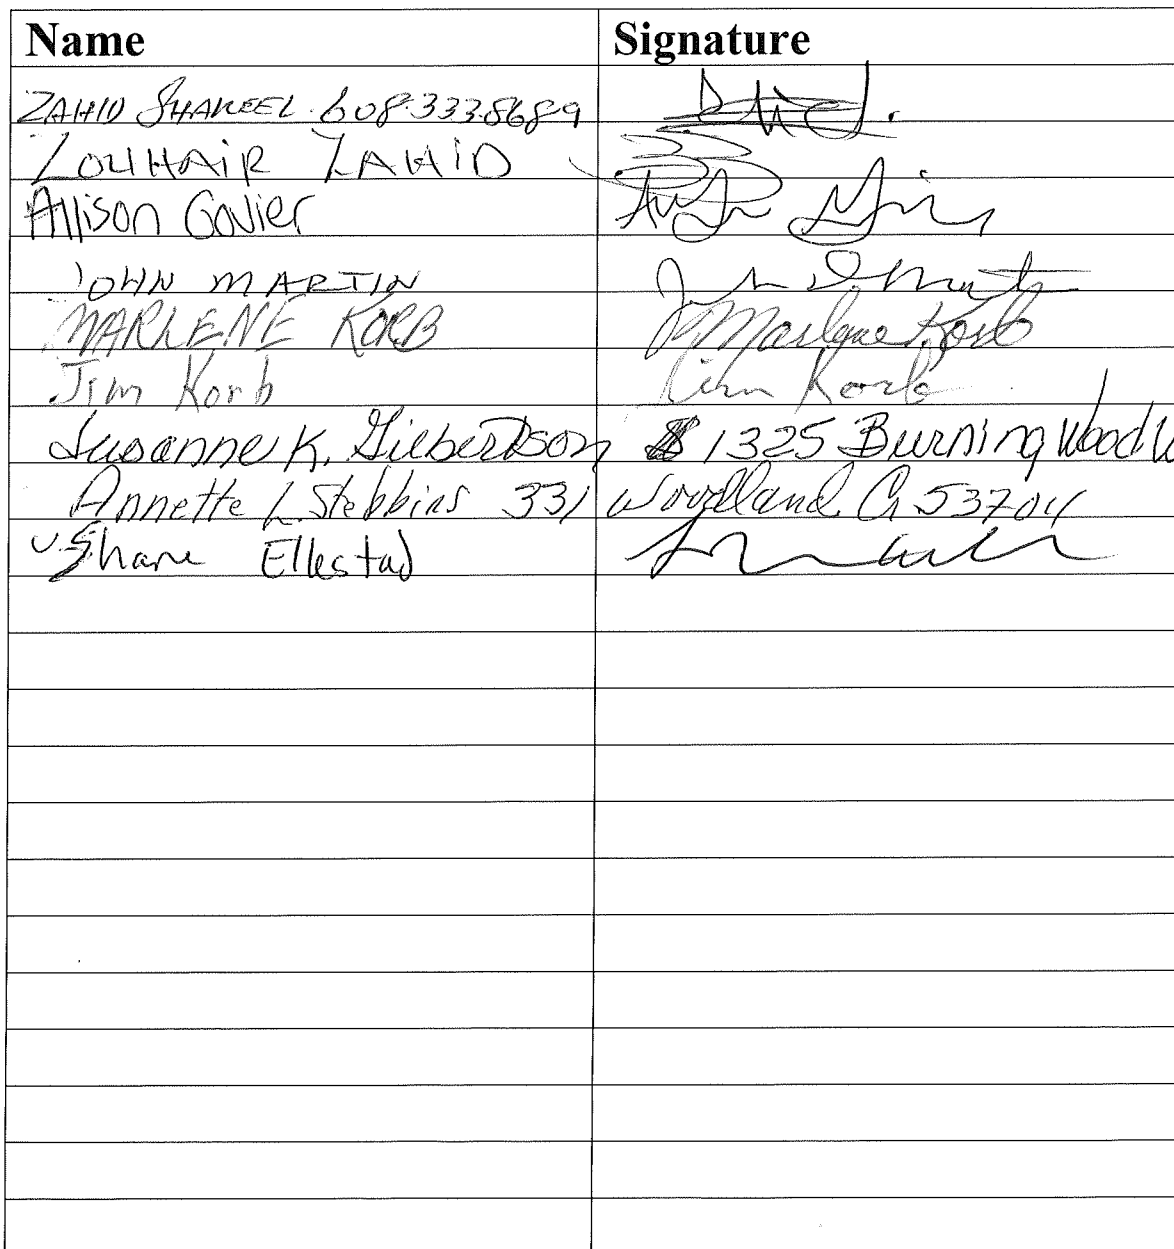 Name Signature
ZAHID SHAKEEL 608.333.8689
ZOUHAIR ZAHID
Allison Govier
JOHN MARTIN John D. Martin
MARLENE KORB Marlene Korb
Jim Korb Jim Korb
Susanne K. Gilbertson 1325 Burning Wood W
Annette L. Stebbins 331 Woodland Ct 53704
Shane Ellestad